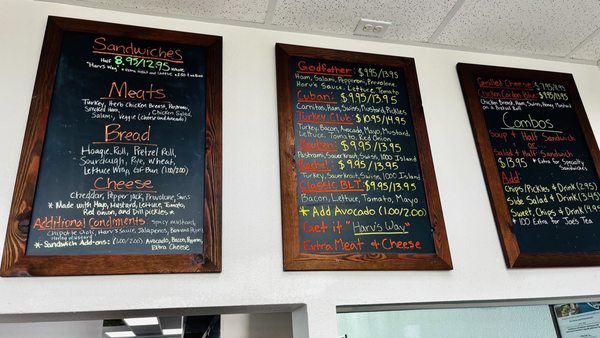 Sandwiches
Half 8.95/12.95 Whole
"Harv's Way"
Meats
Turkey, Herb Chicken Breast, Pastrami,
Smoked Ham, Chicken Salad,
Salami, Veggie (Cheese and Avocado)
Bread
Hoagie Roll, Pretzel Roll,
Sourdough, Rye, Wheat,
Lettuce Wrap, GF Bun (1.00/2.00)
Cheese
Cheddar, Pepper Jack, Provolone, Swiss
* Made with Mayo, Mustard, Lettuce, Tomato,
Red Onion, and Dill Pickles *
Additional Condiments Spicy Mustard,
Harv's Sauce, Jalapenos,
* Sandwich Add-ons: (1.00/2.00) Avocado, Bacon,
Extra Cheese
Godfather $9.95/13.95
Ham, Salami, Pepperoni, Provolone
Harv's Sauce, Lettuce, Tomato
Cuban $9.95/13.95
Carnitas, Ham, Swiss, Pickles, Mustard
Turkey Club $10.95/14.95
Turkey, Bacon, Avocado, Mayo, Mustard
Lettuce, Tomato, Red Onion
Reuben $9.95/13.95
Pastrami, Sauerkraut, Swiss, 1000 Island
Rachel $9.95/13.95
Turkey, Sauerkraut, Swiss, 1000 Island
Classic BLT $9.95/13.95
Bacon, Lettuce, Tomato, Mayo
* Add Avocado (1.00/2.00)
Get it "Harv's Way"
Extra Meat & Cheese
Grilled Cheese
Chicken Cordon Bleu
Chicken, Ham, Swiss, Honey Mustard
Combos
Soup & Half Sandwich
OR
Salad & Half Sandwich
$13.95 * Extra for Specialty
Sandwiches
Add:
Chips/Pickles & Drink
Side Salad & Drink
Sweet, Chips & Drink
* 100 Extra for Joe's Tea